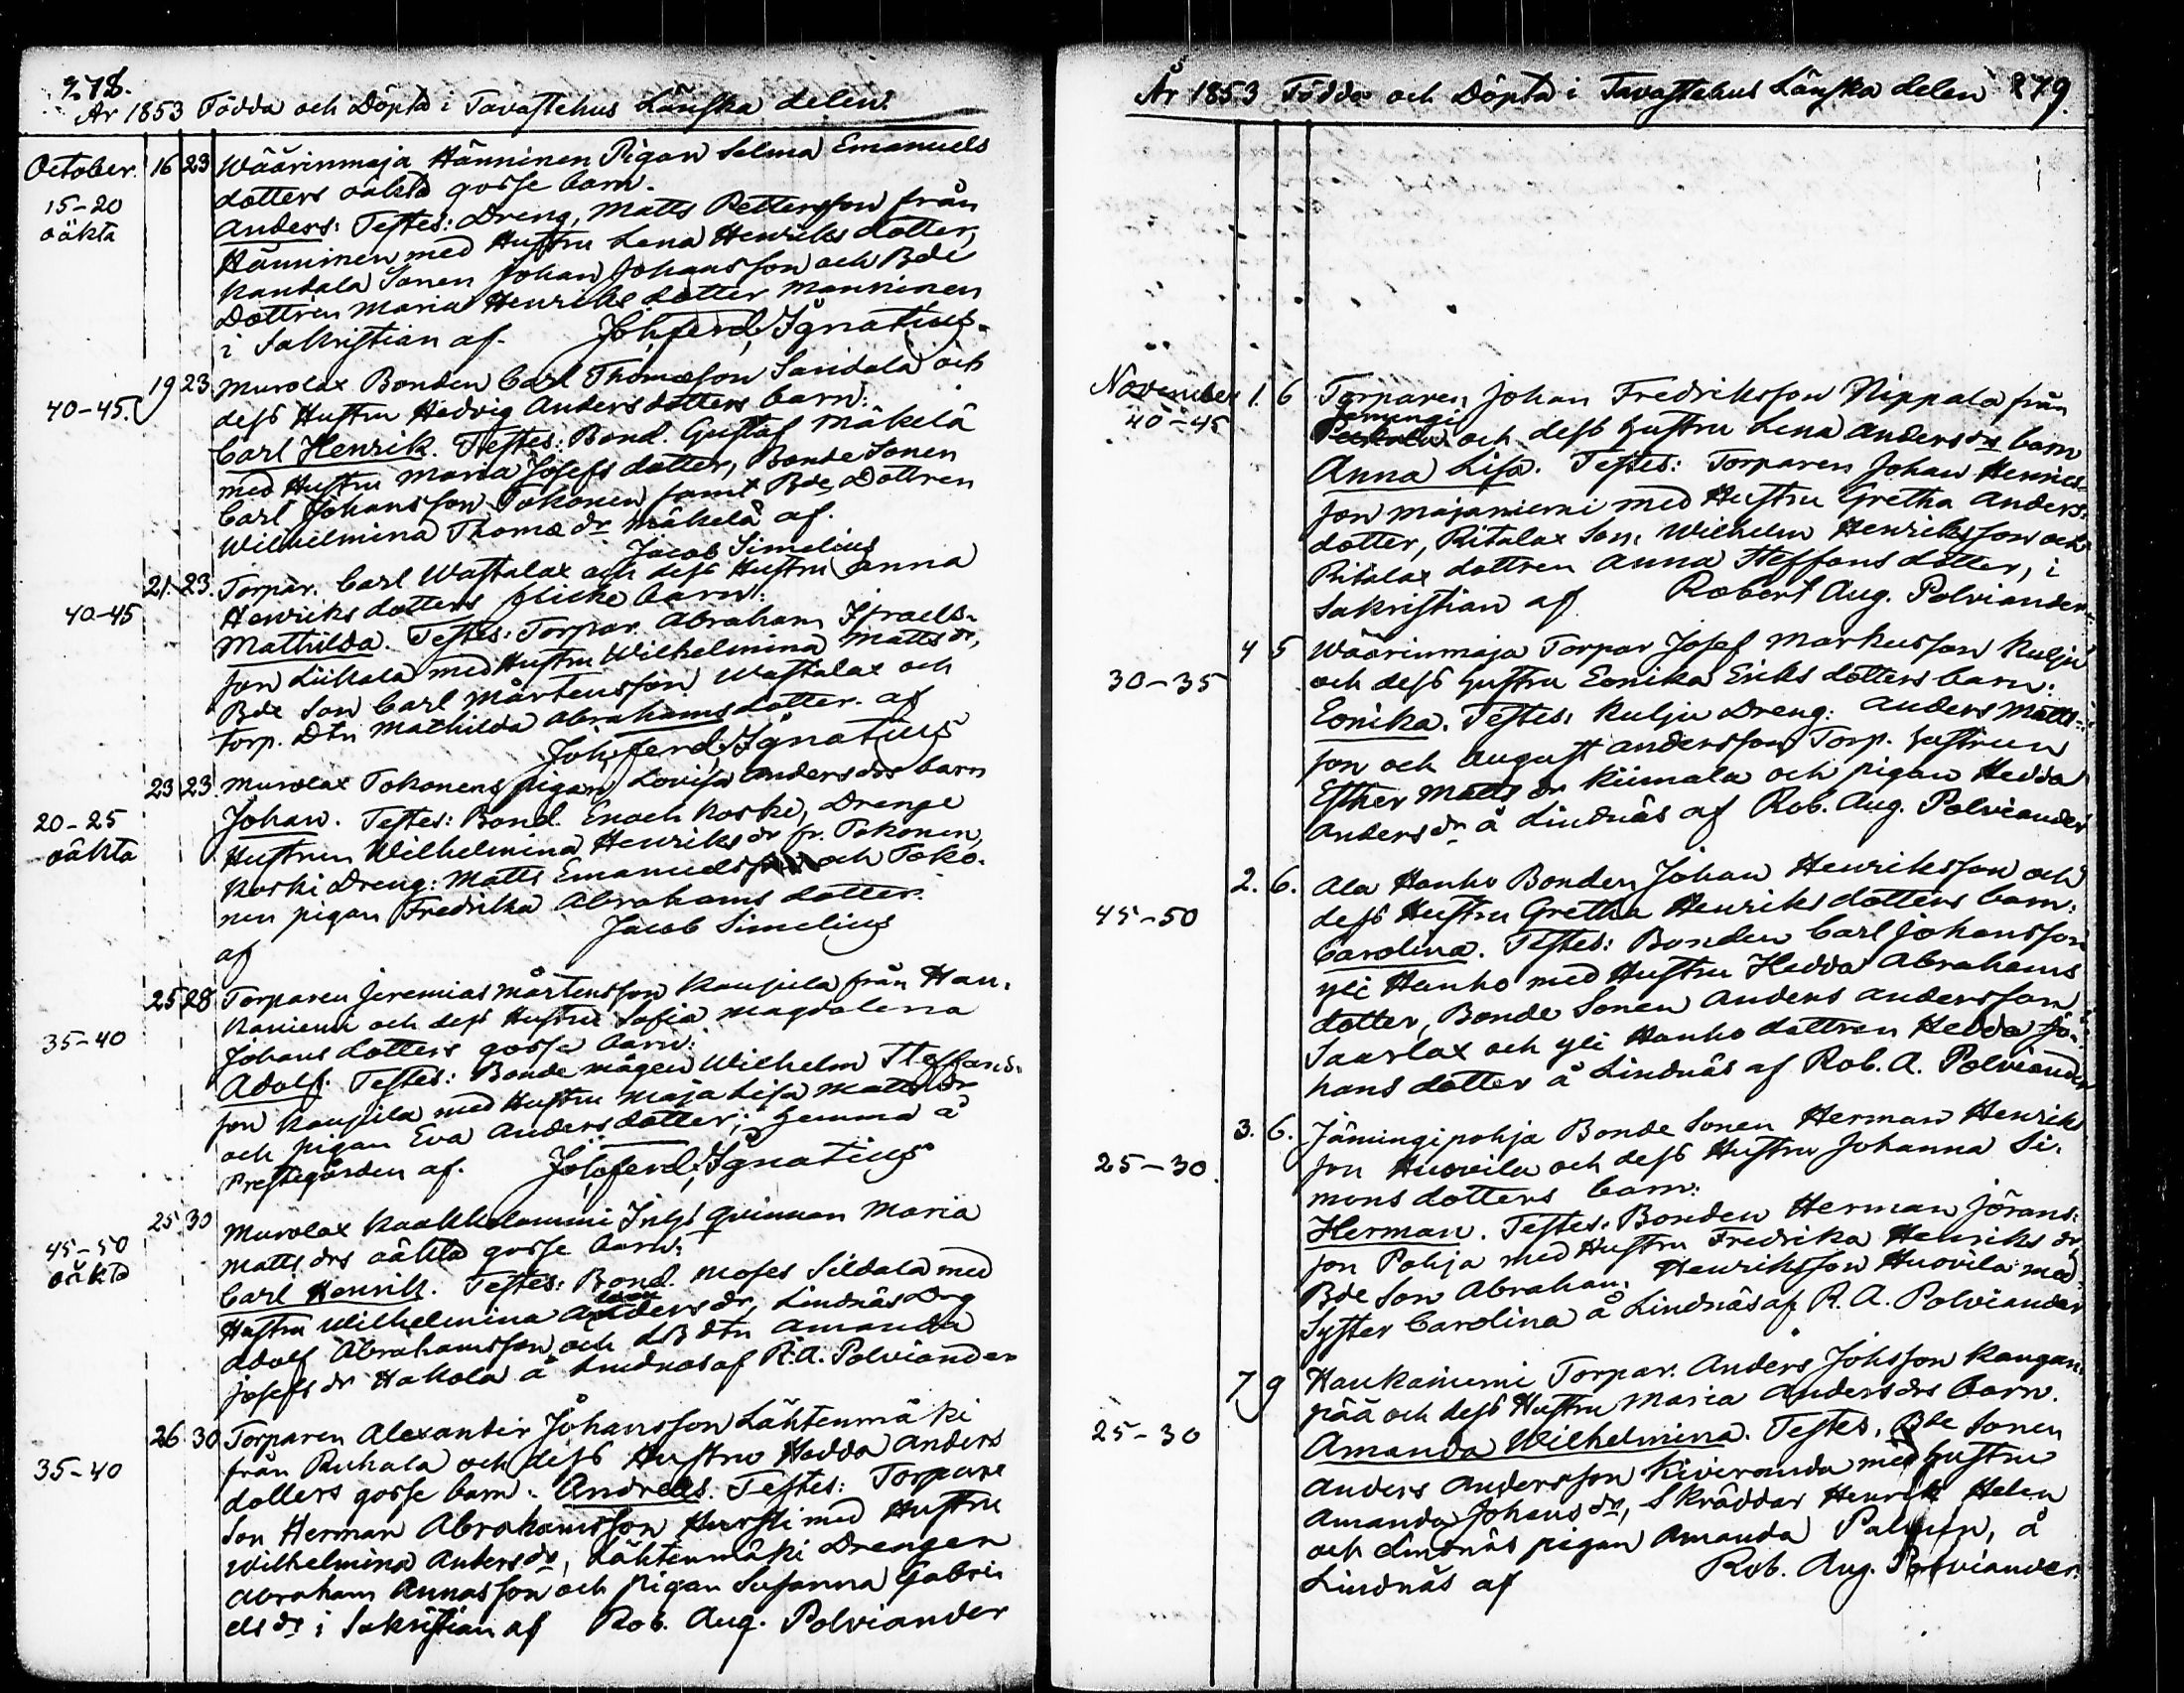 278.
År 1853 Födda och Döpta i Tavastehus Länska delen.
October. 16 23 Wäärinmaja Hänninen Pigan Selma Emanuels
15-20 dotters oäkta gosse barn.
oäkta Anders. Testes: Dreng. Matts Pettersson från
Hänninen med Hustru Lena Henriks dotter,
Kandala Sonen Johan Johansson och Bde
Dottren Maria Henriks dotter Manninen
i Sakristian af. Joh. ferd. Ignatius.
19 23 Murolax Bonden Carl Thomæson Saridala och
40-45. dess Hustru Hedvig Anders dotters barn:
Carl Henrik. Testes: Bond. Gustaf Mäkelä
med Hustru Maria Josefs dotter, Bonde Sonen
Carl Johansson Tokonen samt Bde Dottren
Wilhelmina Thomæ dr Mäkelä af.
Jacob Simelius
21. 23. Torpar. Carl Wastalax och dess Hustru Anna
40-45 Henriks dotters flicke barn:
Mathilda. Testes: Torpar. Abraham Israels-
son Liikala med Hustru Wilhelmina Matts dr,
Bde Son Carl Mårtensson Wastalax och
Torp. Dtn Mathilda Abrahams dotter. af
Joh. ferd. Ignatius
23 23. Murolax Tokonens pigan Lovisa Anders drs barn
20-25 Johan. Testes: Bond. Enoch Koski, Drenge
oäkta Hustrun Wilhelmina Henriks dr fr. Tokonen,
Koski Dreng: Matts Emanuelsson och Toko-
nen pigan Fredrika Abrahams dotter.
af Jacob Simelius
25 28 Torparen Jeremias Mårtensson Kaupila från Hau-
kaniemi och dess Hustru Sofia Magdalena
35-40 Johans dotters gosse barn:
Adolf. Testes: Bonde mågen Wilhelm Steffans-
son Kaupila med Hustru Maja Lisa Matts dr
och pigan Eva Anders dotter; hemma å
Prestegården af. Joh. ferd. Ignatius
25 30 Murolax Kaakkolammi Inhys qvinnan Maria
45-50 Matts drs oäkta gosse barn:
oäkta Carl Henrik. Testes: Bond. Moses Sildala med
Hustru Wilhelmina Anders dr, Lindnäs Drg
Adolf Abrahamsson och LB dtn Amanda
Josefs dr Hakola å Lindnäs af R. A. Polviander
26 30 Torparen Alexander Johansson Lähtenmäki
35-40 från Ruhala och dess Hustru Hedda Anders
dotters gosse barn. Andreas. Testes: Torpare
Son Herman Abrahamsson Hursti med Hustru
Wilhelmina Anders dr, Lähtenmäki Drengen
Abraham Annasson och pigan Susanna Gabri-
els dr i Sakristian af Rob. Aug. Polviander
År 1853 Födda och Döpta i Tavastehus Länska delen 279.
November 1. 6 Torparen Johan Fredriksson Nippala från
Jämingi
40-45 och dess hustru Lena Anders drs barn
Anna Lisa. Testes: Torparen Johan Henrics-
son Majaniemi med Hustru Gretha Anders-
dotter, Ritalax Son. Wilhelm Henriksson och
Ritalax dottren Anna Steffans dotter, i
Sakristian af Robert Aug. Polviander
4 5 Wäärinmaja Torpar Josef Markusson Kulju
30-35 och dess hustru Eonika Eriks dotters barn:
Eonika. Testes. Kulju Dreng: Anders Matts-
son och August Andersson, Torp. hustrun
Esther Matts dr Kiimala och pigan Hedda
Anders dr å Lindnäs af Rob. Aug. Polviander
2. 6. Ala Hanho Bonden Johan Henriksson och
45-50 dess Hustru Gretha Henriks dotters barn:
Carolina. Testes: Bonden Carl Johansson
yli Hanho med Hustru Hedda Abrahams
dotter, Bonde Sonen Anders Andersson
Saarlax och yli Hanho dottren Hedda Jo-
hans dotter å Lindnäs af Rob. A. Polviander
3. 6. Jämingipohja Bonde Sonen Herman Henriks
25-30. son Huovila och dess Hustru Johanna Si-
mons dotters barn:
Herman. Testes: Bonden Herman Jörans-
son Pohja med Hustru Fredrika Henriks dr
Bde Son Abraham Henriksson Huovila med
Syster Carolina å Lindnäs af R. A. Polviander
7 9 Haukaniemi Torpar. Anders Johsson Kangan
25-30 pää och dess Hustru Maria Anders drs barn.
Amanda Wilhelmina. Testes. Bde Sonen
Anders Andersson Kiviranda med hustru
Amanda Johans dr, Skräddar Henrik Helen
och Lindnäs pigan Amanda Palmén, å
Lindnäs af Rob. Aug. Polviander.